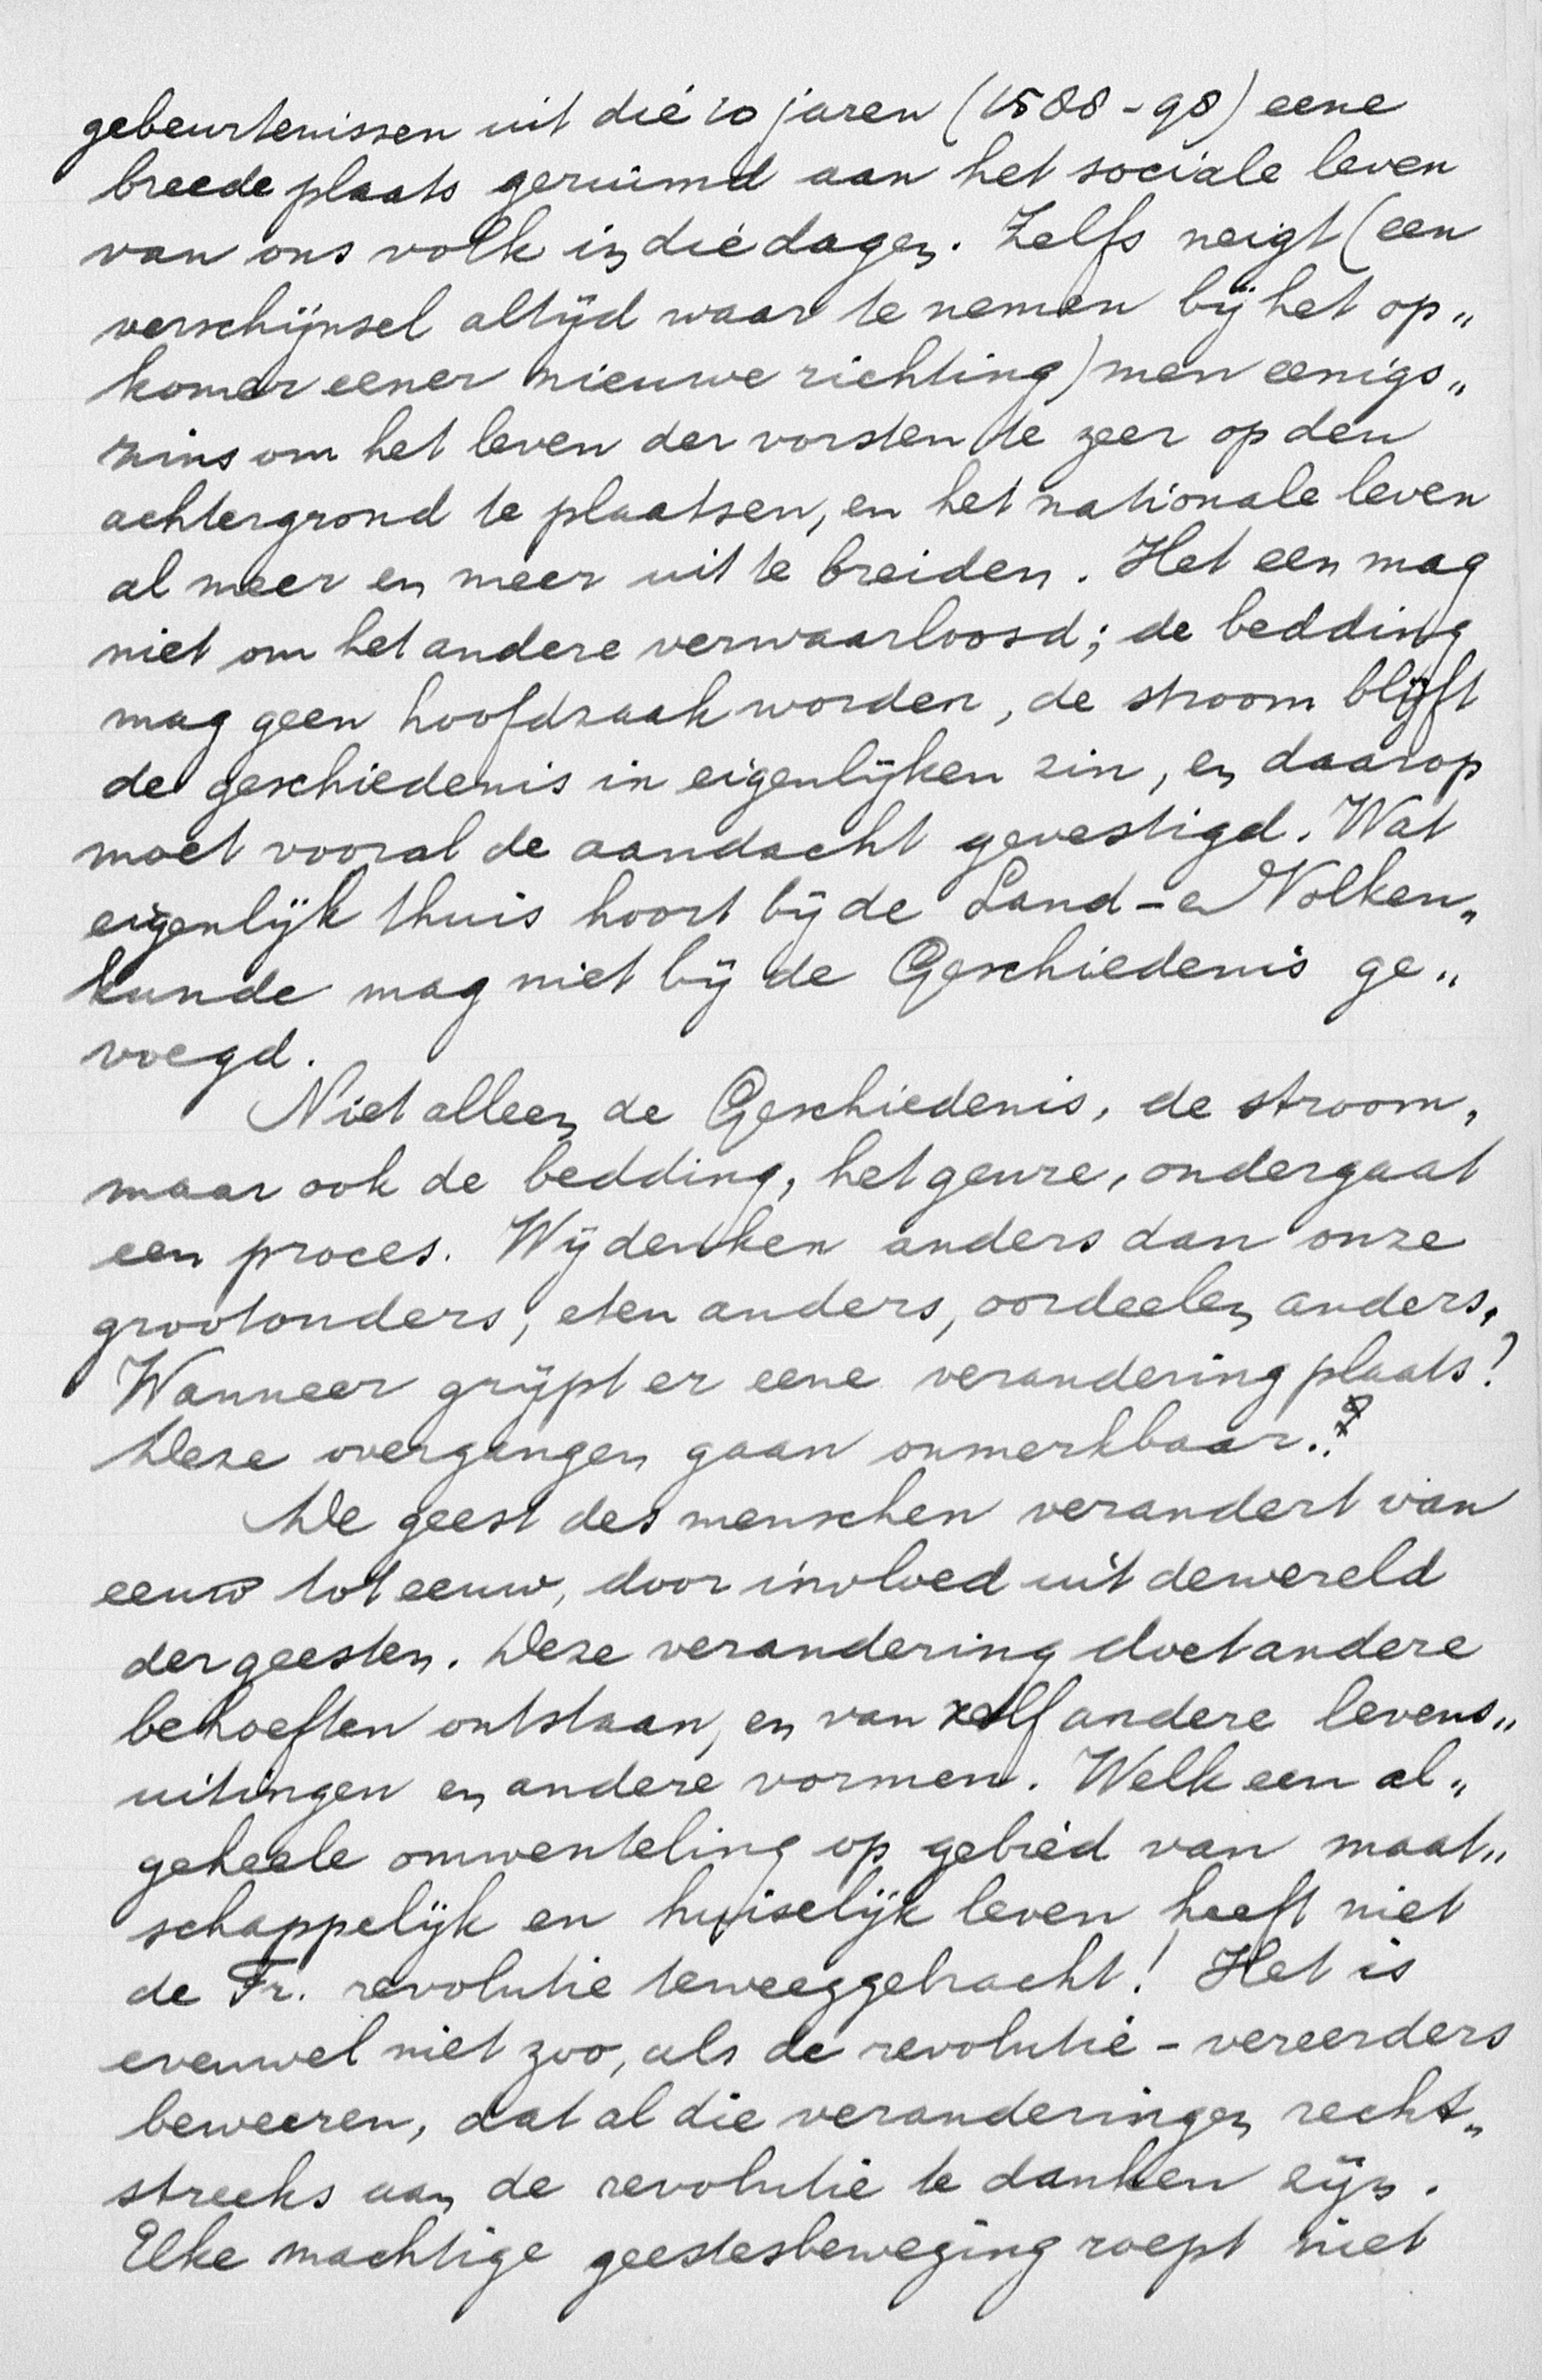 gebeurtenissen uit dié 10 jaren (1588-98) eene
breede plaats geruimd aan het sociale leven
van ons volk in dié dagen. Zelfs neigt (een
verschijnsel altijd waar te nemen bij het op„
komen eener nieuwe richting) men eenigs„
zins om het leven der vorsten te zeer op den
achtergrond te plaatsen, en het nationale leven
al meer en meer uit te breiden. Het een mag
niet om het andere verwaarloosd; de bedding
mag geen hoofdzaak worden, de stroom blijft
de geschiedenis in eigenlijken zin, en daarop
moet vooral de aandacht gevestigd. Wat
eigenlijk thuis hoort bij de Land- en Volken„
kunde mag niet bij de Geschiedenis ge„
voegd.
Niet alleen de Geschiedenis, de stroom,
maar ook de bedding, het genre, ondergaat
een proces. Wij denken anders dan onze
grootouders, eten anders, oordeelen anders.
Wanneer grijpt er eene verandering plaats?
Deze overgangen gaan onmerkbaar..?
De geest des menschen verandert van
eeuw tot eeuw, door invloed uit de wereld
der geesten. Deze verandering doet andere
behoeften ontstaan, en van zelf andere levens„
uitingen en andere vormen. Welk een al„
geheele omwenteling op gebied van maat„
schappelijk en huiselijk leven heeft niet
de Fr. revolutie teweeggebracht! Het is
evenwel niet zoo, als de revolutie-vereerders
beweeren, dat al die veranderingen recht„
streeks aan de revolutie te danken zijn.
Elke machtige geestesbeweging roept niet